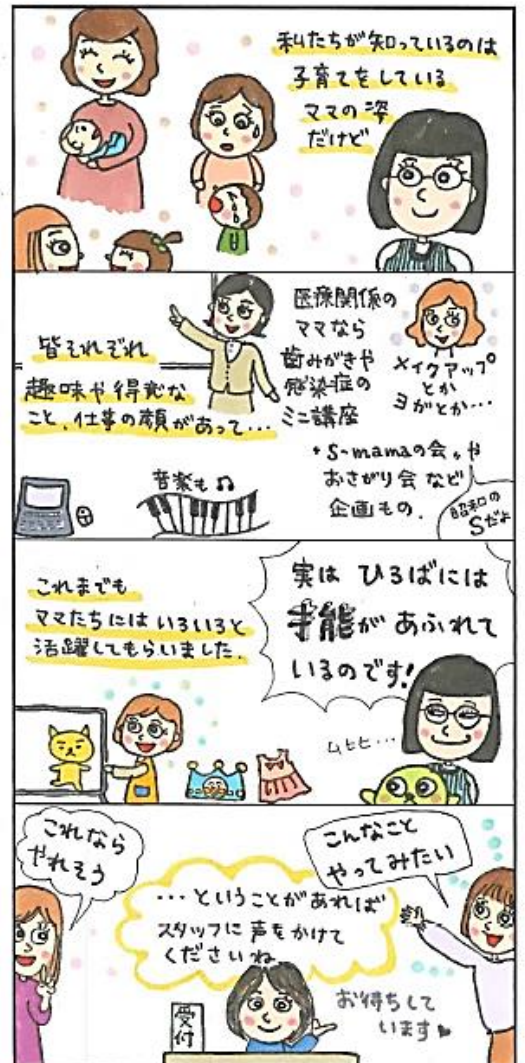 私たちが知っているのは
子育てをしている
ママの姿
だけど
皆それぞれ
趣味や得意な
こと、仕事の顔があって…
医療関係の
ママなら
歯みがきや
感染症の
ミニ講座
メイクアップ
とか
ヨガとか…
音楽も♫
・S-mamaの会。や
おさがり会 など
企画もの.
昭和の
Sだよ
これまでも
ママたちにはいろいろと
活躍してもらいました.
実は ひろばには
才能が あふれて
いるのです!
ムヒヒ…
これなら
やれそう
こんなこと
やってみたい
…ということがあれば
スタッフに声をかけて
くださいね
受付
お待ちして
います♥